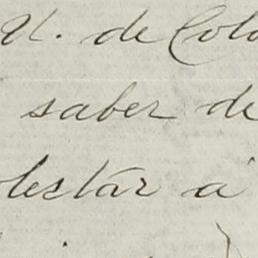 U. de Colo
saber de
lestar a